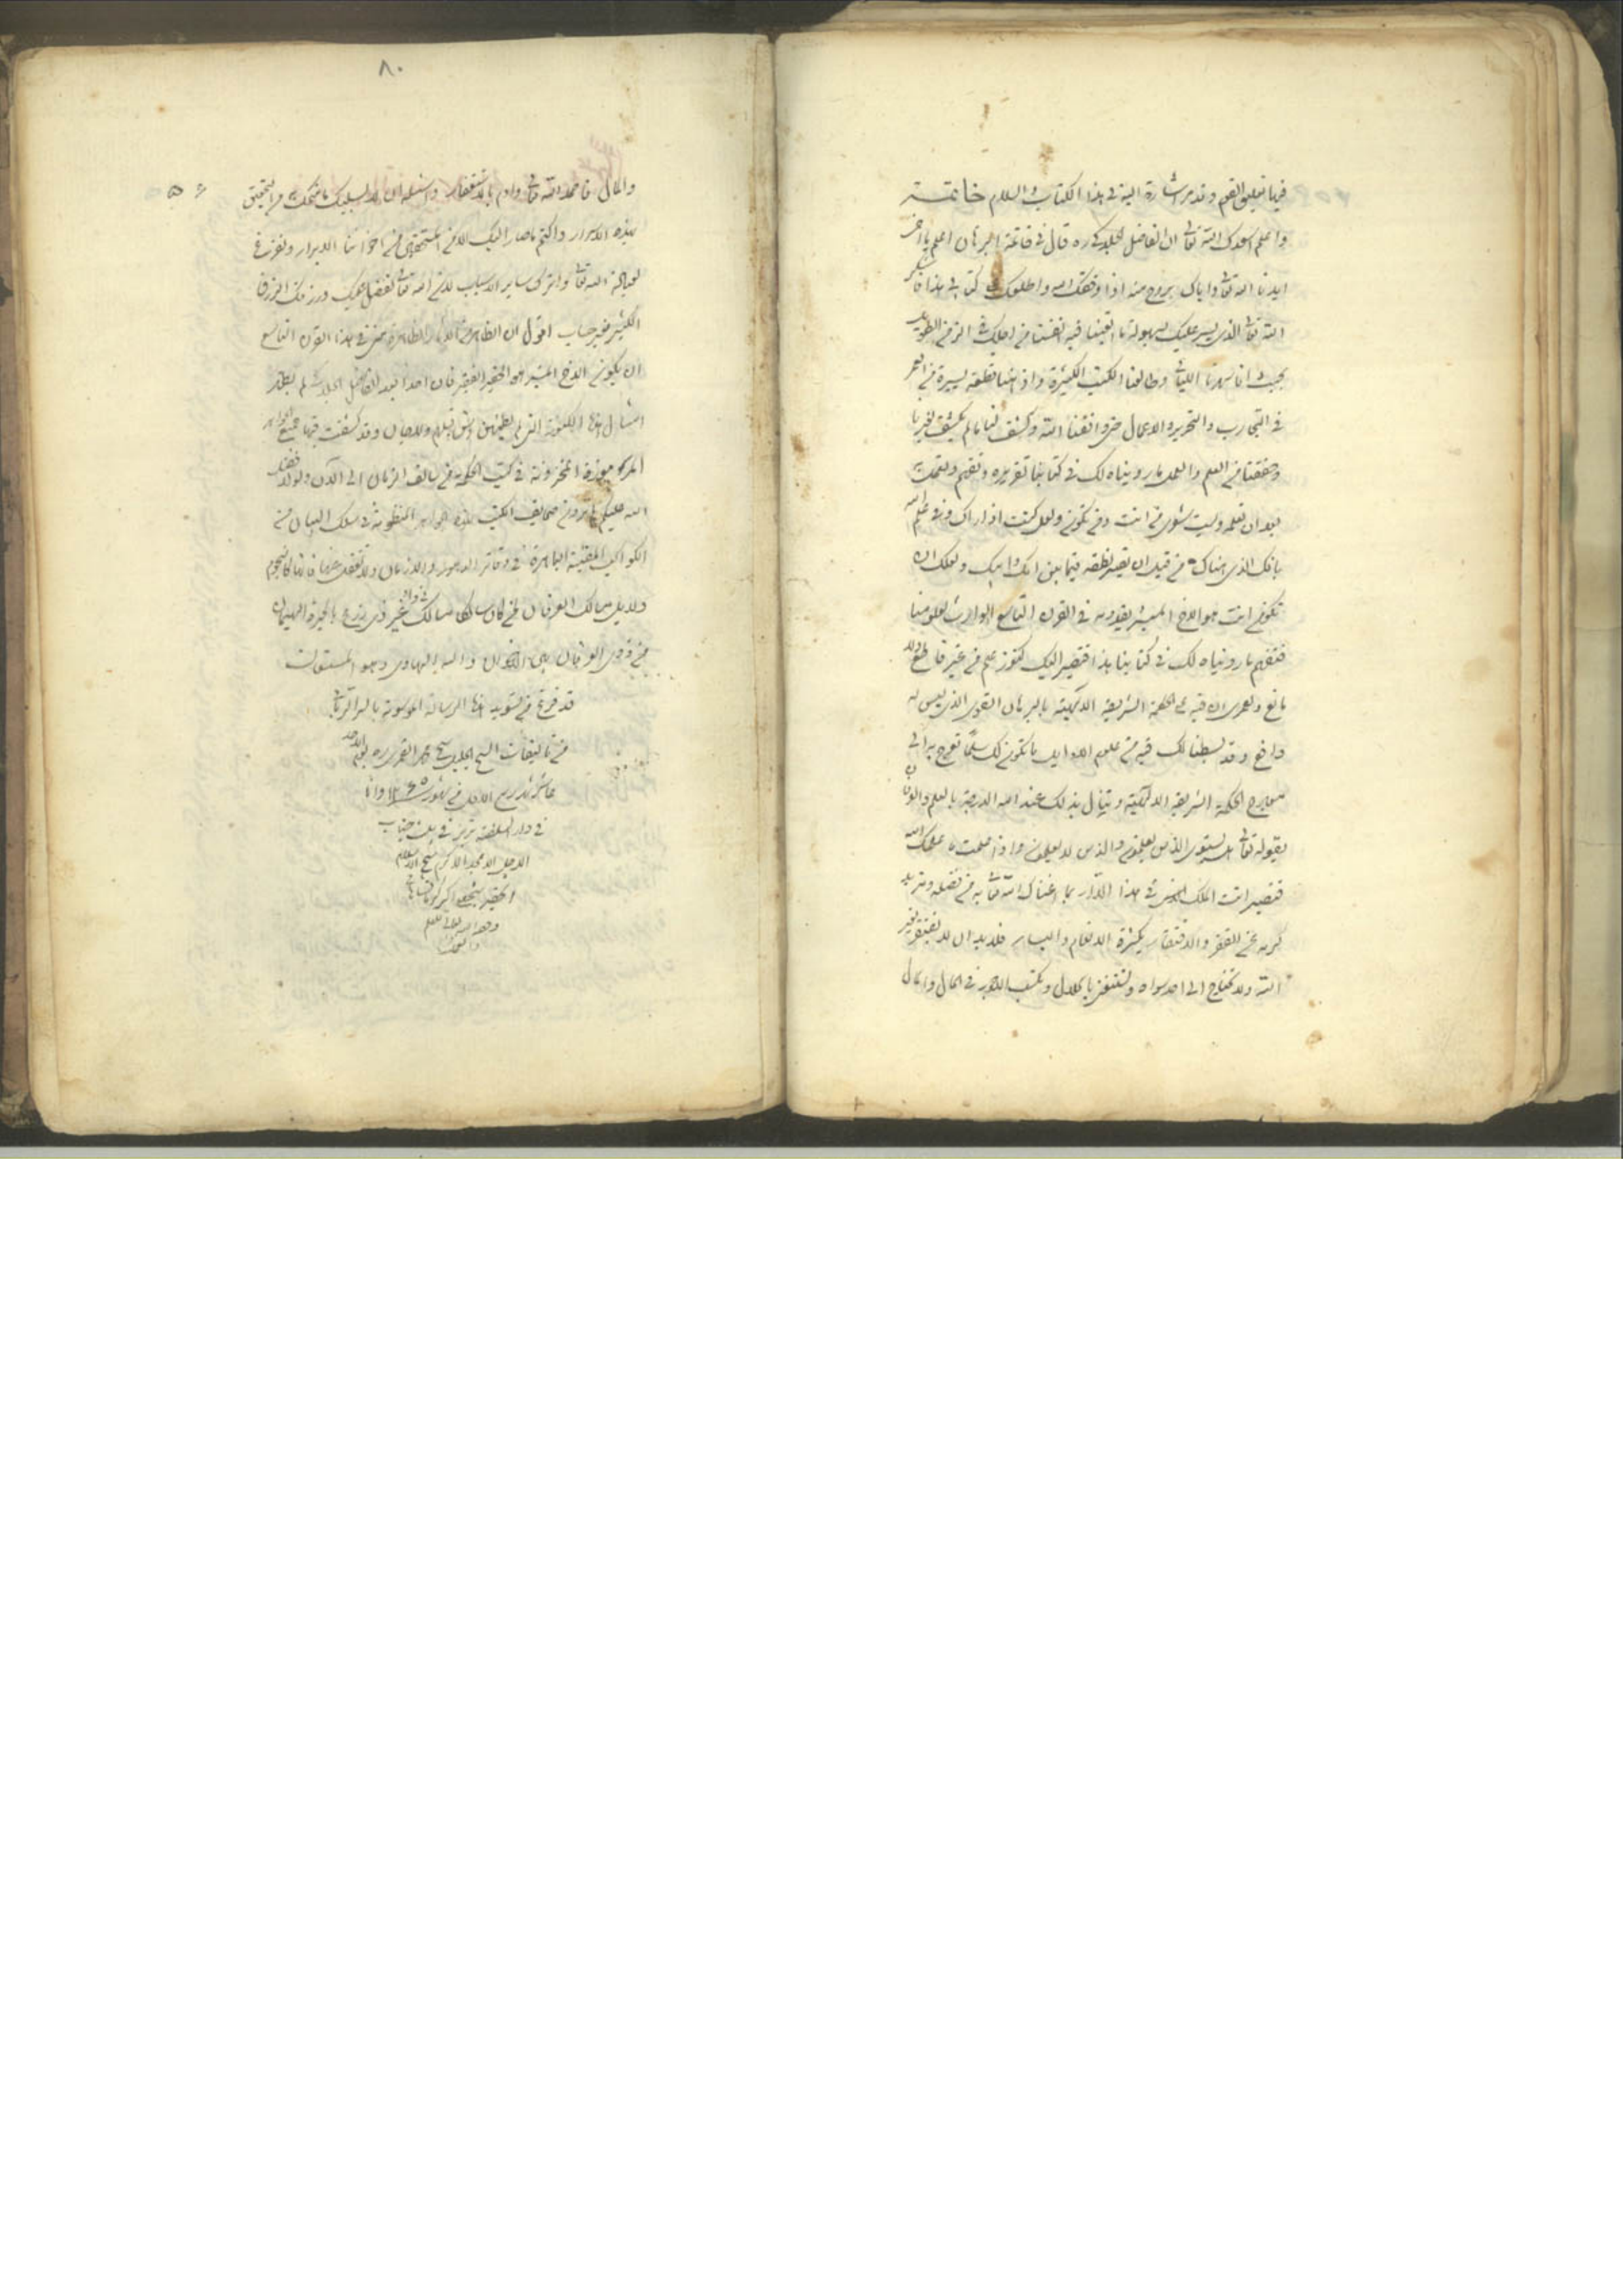 فيها تعليق القمر وقد مر اشارة اليه في هذا الكتاب والسلام خاتمة
واعلم اسعدك الله تعالى ان الفاضل الجلدكي ره قال في خاتمة البرهان اعلم يا اخى
ايدنا الله تعالى واياك بروح منه اذا وفقك الله واطلعك على كتابي هذا فاشكر
الله تعالى الذي يسر عليك بسهولة ما اتعبنا فيه انفسنا من اجلك في الزمن الطويل
بحيث انا سهرنا الليالى وطالعنا الكتب الكثيرة واذهبنا قطعة يسيرة من العمر
في التجارب والتحرير والاعمال حتى وافقنا الله وكشف لنا ما لم يكشف لغيرنا
وحققنا من العلم والعمل ما رويناه لك في كتابنا تقريره وتفهم وتعمل به
بعد ان تعلم وليت شعرى من انت ومن تكون ولعلى كنت اذا اراك وفي علم الله
بانك الذي هناك من قبل ان تصير نطفة فيما بين امك وابيك ولعلك ان
تكون انت هو الاخ المبشر بقدومه في القرن التاسع الوارث لعلومنا
فتفهم ما رويناه لك في كتابنا هذا فتصير اليك كنوز علم من غير قاطع ولا
مانع ولعمرى ان فيه على الحكمة الشريفة الالهية بالبرهان القوى الذي ليس له
دافع وقد بسطنا لك فيه من علوم الاوايل ما تكون لك سلما تعرج به الى
معارج الحكمة الشريفة الالهية وتنال بذلك عند الله الدرجة بالعلم والعرفان
بقوله تعالى هل يستوى الذين يعلمون والذين لا يعلمون واذا علمت ما علمك الله
فتصير انت الملك في هذا الدار بما اغناك الله تعالى به من فضله ومزيد
كرمه عن الفقر والافتقار بكثرة الانعام واليسار فلا بد ان لا تفتقر لغير
الله ولا تحتاج الى احد سواه وتستغنى بالحلال وتكسب الاجر في الحال والمال
٨٠
والمال فاحمد الله تعالى ودم بالاستغفار واسئله ان لا يسلبك ما منحك به من تحقيق
هذه الاسرار واكتم ما صار اليك الا من المستحقين من اخواننا الابرار وتفرغ
لعبادة الله تعالى واترك ساير الاسباب لان الله تعالى تفضل عليك ورزقك الرزق
الكثير بغير حساب اقول ان الظاهر من الآثار الظاهرة منى في هذا القرن التاسع
ان يكون الاخ المبشر هو الحقير الفقير فان احدا بعد الفاضل الجلدكى لم يظهر
امثال هذه الكنوز التى لم يطمثهن انس قبلهم ولا جان وقد كشفت فيها جميع اسرار
المرموزة المخزونة في كتب الحكمة في سالف الزمان الى الآن ولولا فضل
الله عليكم ما ترون صحايف الكتب بهذه الجواهر المنظومة في سلك البيان من
الكواكب المضيئة الباهرة في دفاتر الدهور والازمان ولا تغفل عنها فانها كالنجوم
ودلايل مسالك العرفان لمن كان سالكا مسالك غير ذى زرع بالحيرة الهيمان
من ذوى العرفان بين الاخوان والله الهادى وهو المستعان
قد فرغ من تسويد هذه الرسالة الموسومة بالسر الربانى
من تاليفات الشيخ الجليل شيخ القمرى ره يوم الاحد
عاشر شهر ربيع الاول من شهور ١٢٦٥ وانا
في دار السلطنة تبريز في بيت جناب
الاجل الامجد الاكرم شيخ الاسلام
الحقير
وفقه الله تعالى للعلم
والعمل